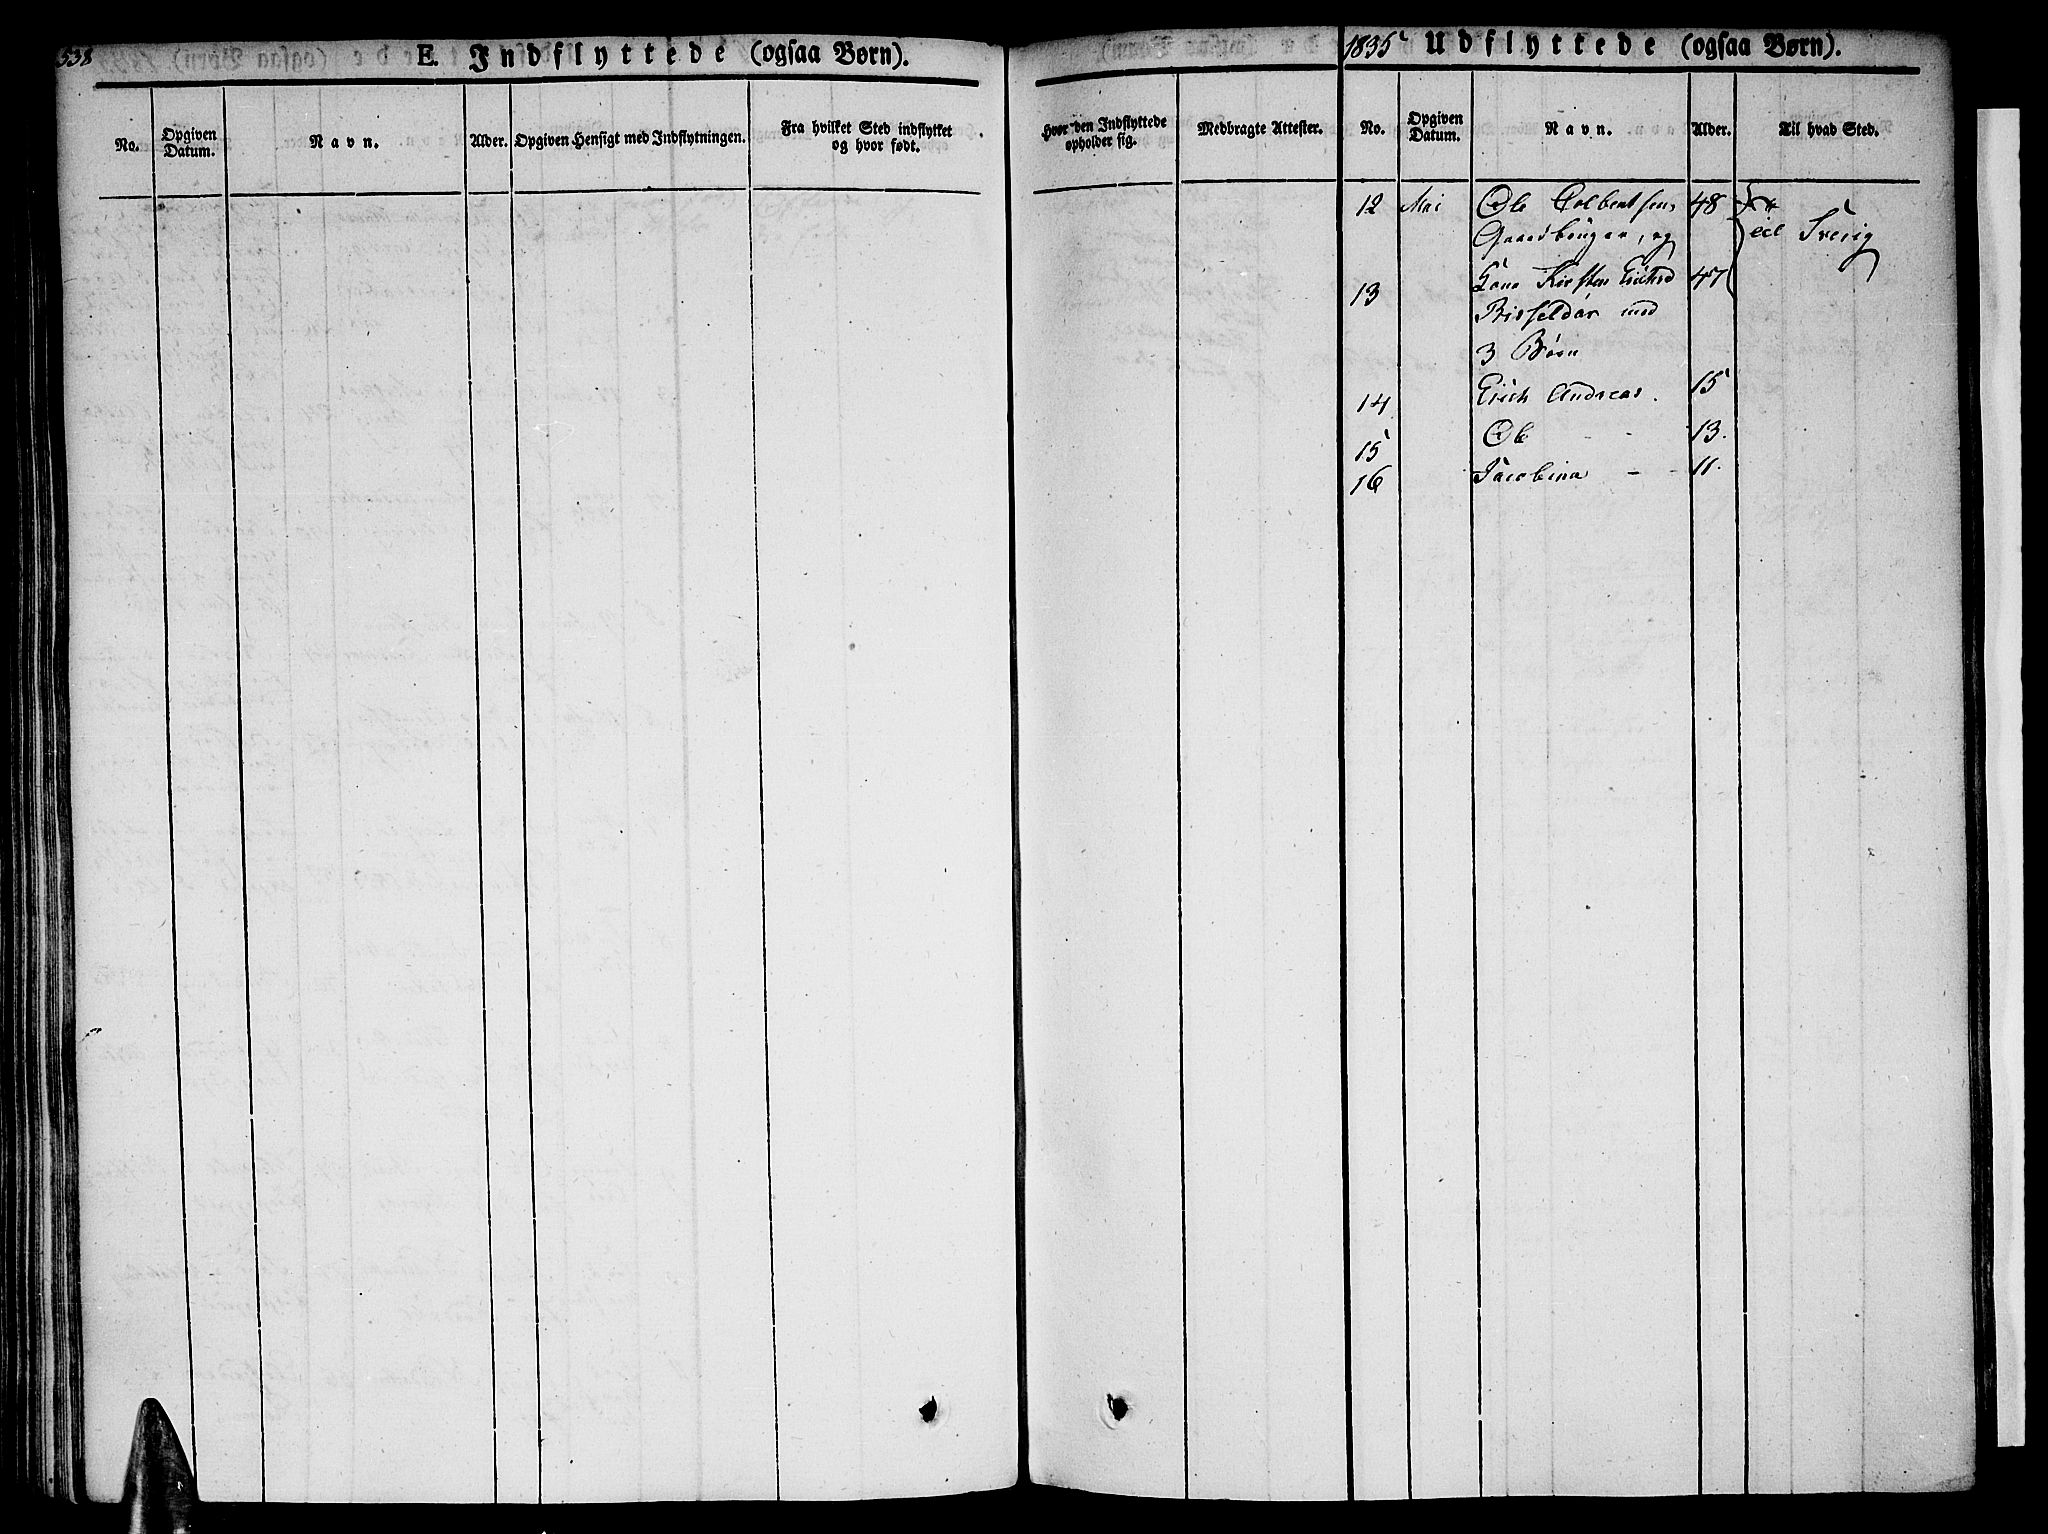 538
E. Indflyttede (ogsaa Børn).
No.
Opgiven Datum.
Navn.
Alder.
Opgiven Hensigt med Indflytningen.
Fra hvilket Sted indflyttet
og hvor født.
Hvor den Indflyttede
opholder sig.
Medbragte Attester.
1835 Udflyttede (ogsaa Børn).
No.
Opgiven Datum.
Navn.
Alder.
Til hvad Sted.
12 Mai Ole Colbentsen 48
Gaardbruger, og
til
13 Kone Kirsten 47
med
3 Børn
14 Erich Andreas. 15
15 Ole - - 13.
16 Jacobina - - 11.